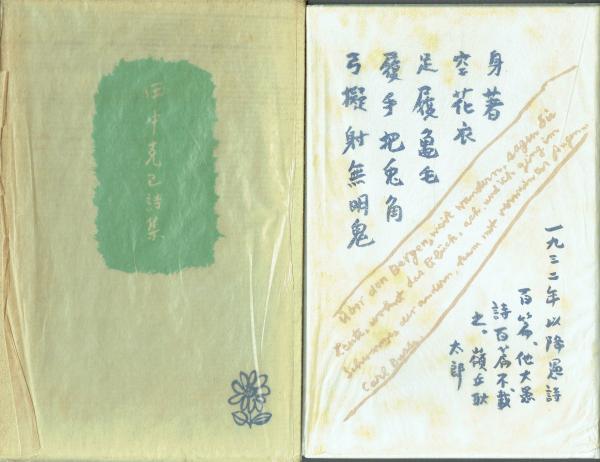 田中克己詩集
身著
空花衣
足履亀毛
履手把兎角
弓擬射無明鬼
Über den Bergen, weit wandern, sagen die
Leute, wohnt das Glück, ach, und ich, ging im
Schwarme der andern, kam mit verweinten Augen
Carl Busse
一九三二年以降愚詩
百篇、他大愚
詩百篇不載
之。嶺丘耿
太郎